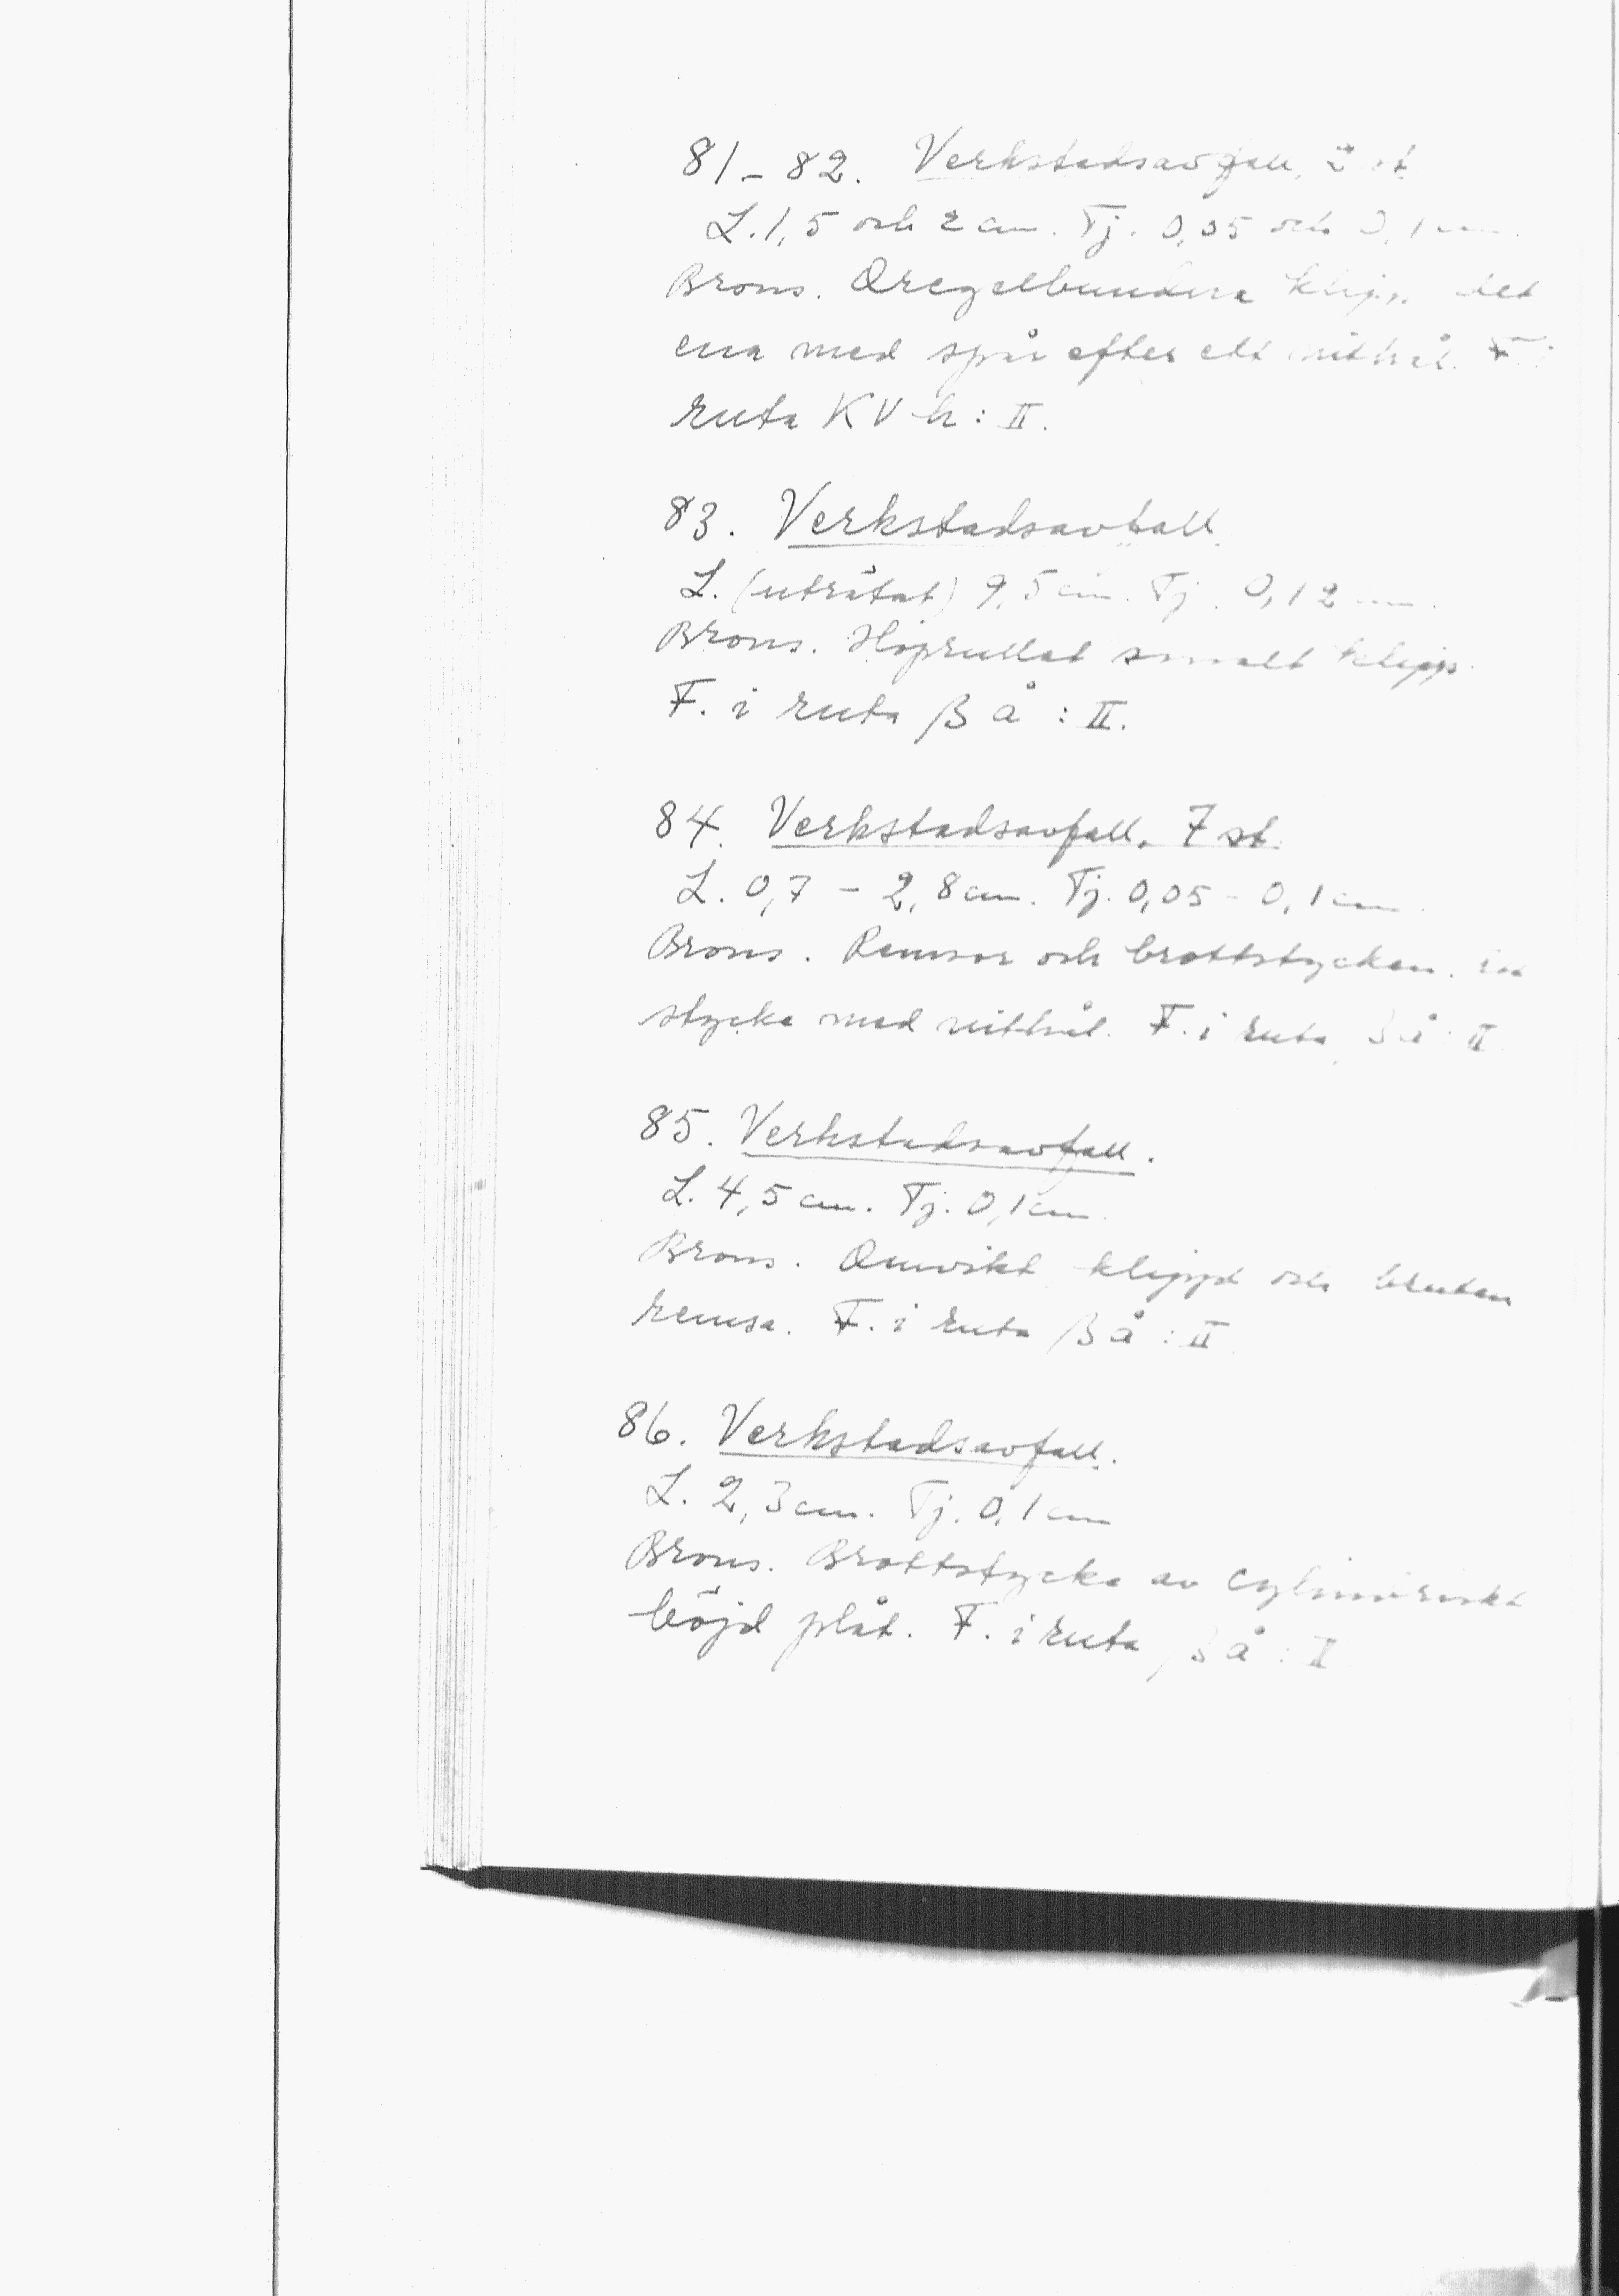 81-82. Verkstadsavfall, 2 st.
L. 1,5 och 2 cm. Tj. 0,05 och 0,1 cm.
Brons. Oregelbundna klipp, det
ena med spår efter ett nithål. F. i
ruta KV h : II.
83. Verkstadsavfall.
L. (uträtat) 9,5 cm. Tj. 0,12 cm.
Brons. Hoprullat smalt klipp.
F. i ruta β å : II.
84. Verkstadsavfall, 7 st.
L. 0,7 - 2,8 cm. Tj. 0,05 - 0,1 cm.
Brons. Remsor och brottstycken.
stycke med nithål. F. i ruta β å : II
85. Verkstadsavfall.
L. 4,5 cm. Tj. 0,1 cm.
Brons. Omvikt klippt och bruten
remsa. F. i ruta β å : II.
86. Verkstadsavfall.
L. 2,3 cm. Tj. 0,1 cm
Brons. Brottstycke av cylindriskt
böjd plåt. F. i ruta β å : II